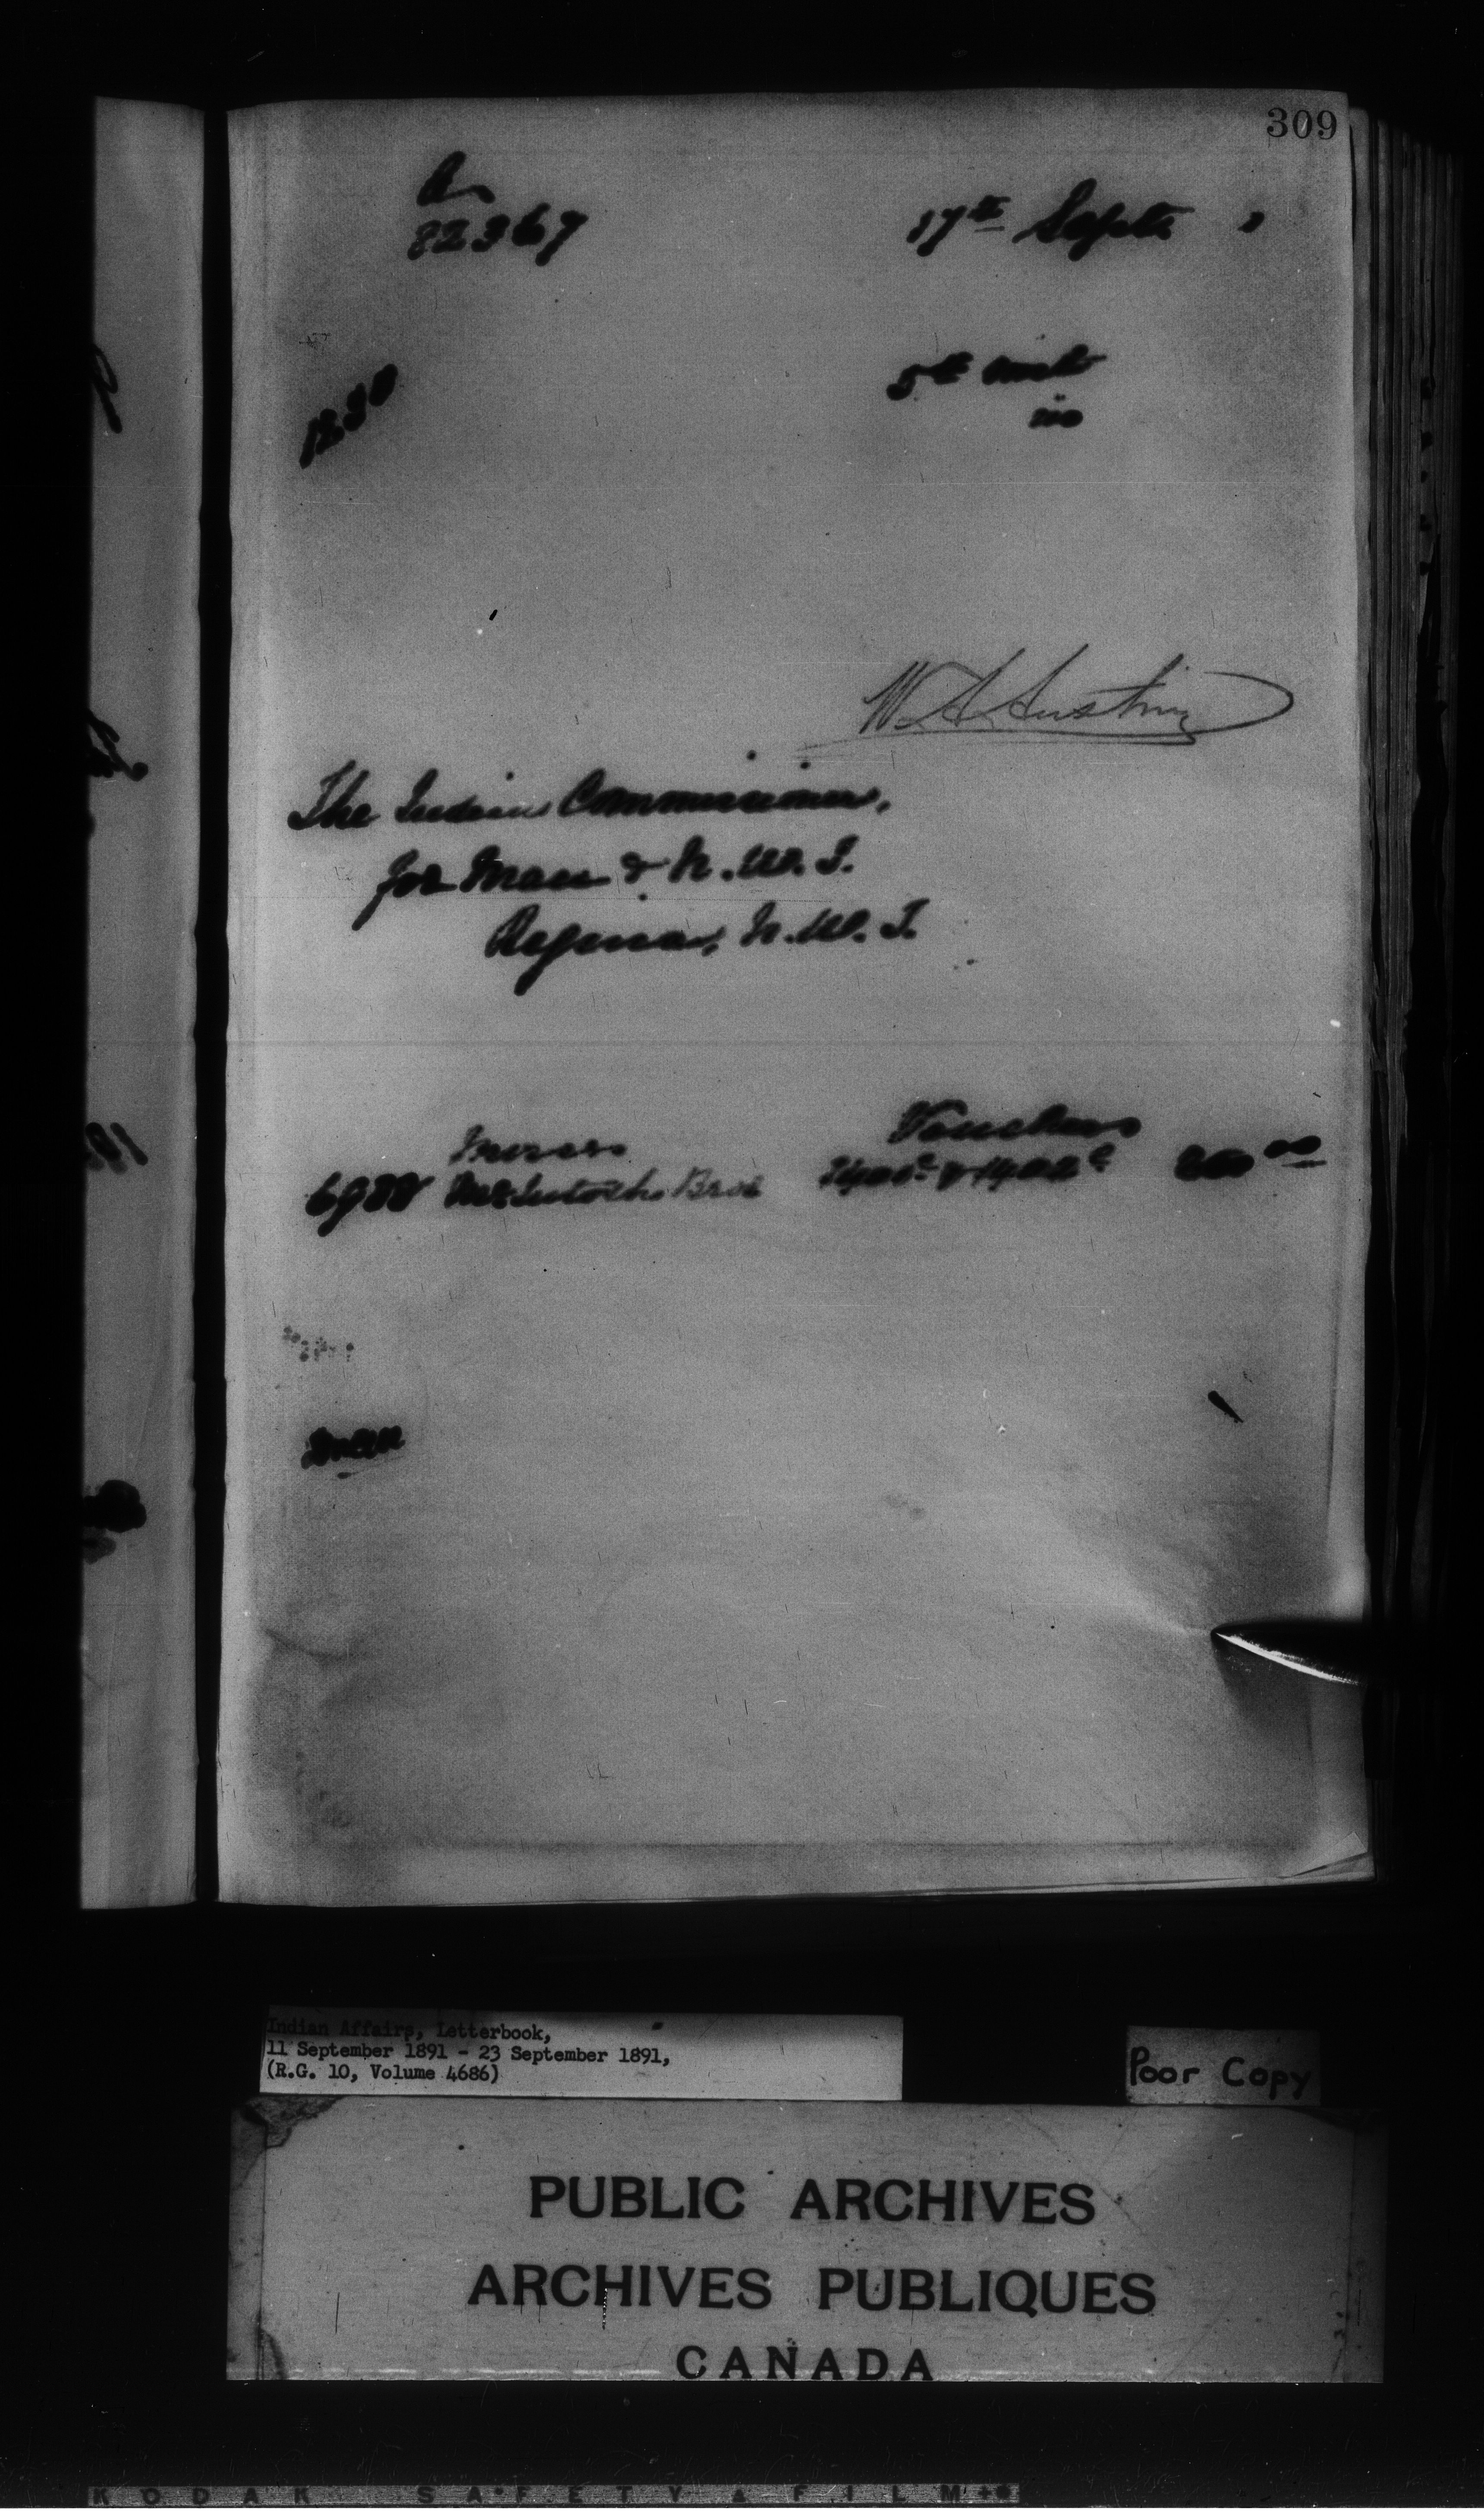 309
82367
17th Septr
1230
5th inst
W. A. Austin
The Indian Commissioner,
for Man & N.W.T.
Regina, N.W.T.
Messrs Vouchers
6988 McIntosh Bros
Indian Affairs, Letterbook,
11 September 1891 - 23 September 1891,
(R.G. 10, Volume 4686)
Poor Copy
PUBLIC ARCHIVES
ARCHIVES PUBLIQUES
CANADA
KODAK SAFETY FILM